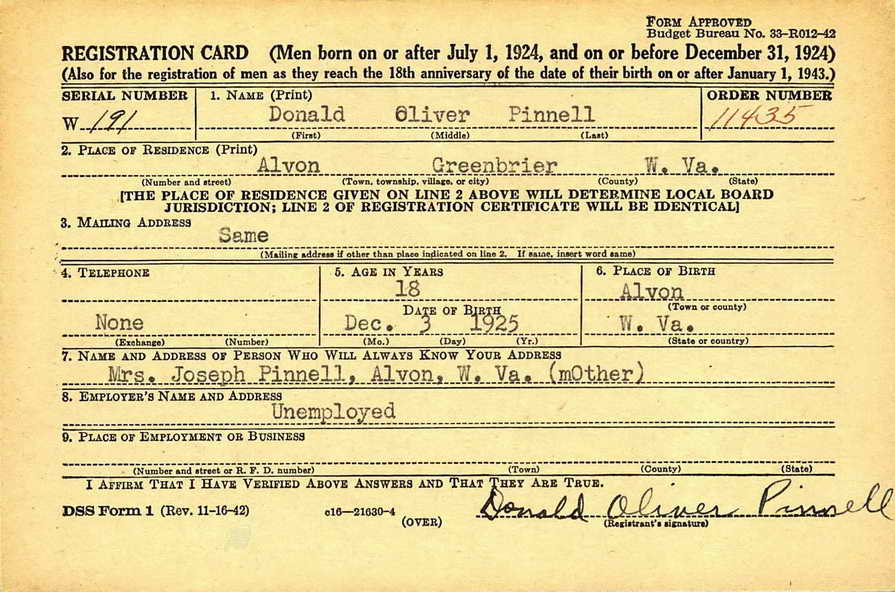 FORM APPROVED
Budget Bureau No. 33–R012–42
REGISTRATION CARD (Men born on or after July 1, 1924, and on or before December 31, 1924)
(Also for the registration of men as they reach the 18th anniversary of the date of their birth on or after January 1, 1943.)
SERIAL NUMBER 1. NAME (Print) ORDER NUMBER
W 191 Donald Oliver Pinnell 11435
(First) (Middle) (Last)
2. PLACE OF RESIDENCE (Print)
Alvon Greenbrier W. Va.
(Number and street) (Town, township, village, or city) (County) (State)
[THE PLACE OF RESIDENCE GIVEN ON LINE 2 ABOVE WILL DETERMINE LOCAL BOARD
JURISDICTION; LINE 2 OF REGISTRATION CERTIFICATE WILL BE IDENTICAL]
3. MAILING ADDRESS
Same
(Mailing address if other than place indicated on line 2. If same, insert word same)
4. TELEPHONE 5. AGE IN YEARS 6. PLACE OF BIRTH
18 Alvon
DATE OF BIRTH (Town or county)
None Dec. 3 1925 W. Va.
(Exchange) (Number) (Mo.) (Day) (Yr.) (State or country)
7. NAME AND ADDRESS OF PERSON WHO WILL ALWAYS KNOW YOUR ADDRESS
Mrs. Joseph Pinnell, Alvon, W. Va. (mOther)
8. EMPLOYER'S NAME AND ADDRESS
Unemployed
9. PLACE OF EMPLOYMENT OR BUSINESS
(Number and street or R. F. D. number) (Town) (County) (State)
I AFFIRM THAT I HAVE VERIFIED ABOVE ANSWERS AND THAT THEY ARE TRUE.
DSS Form 1 (Rev. 11-16-42) c16—21630-4 Donald Oliver Pinnell
(OVER) (Registrant's signature)